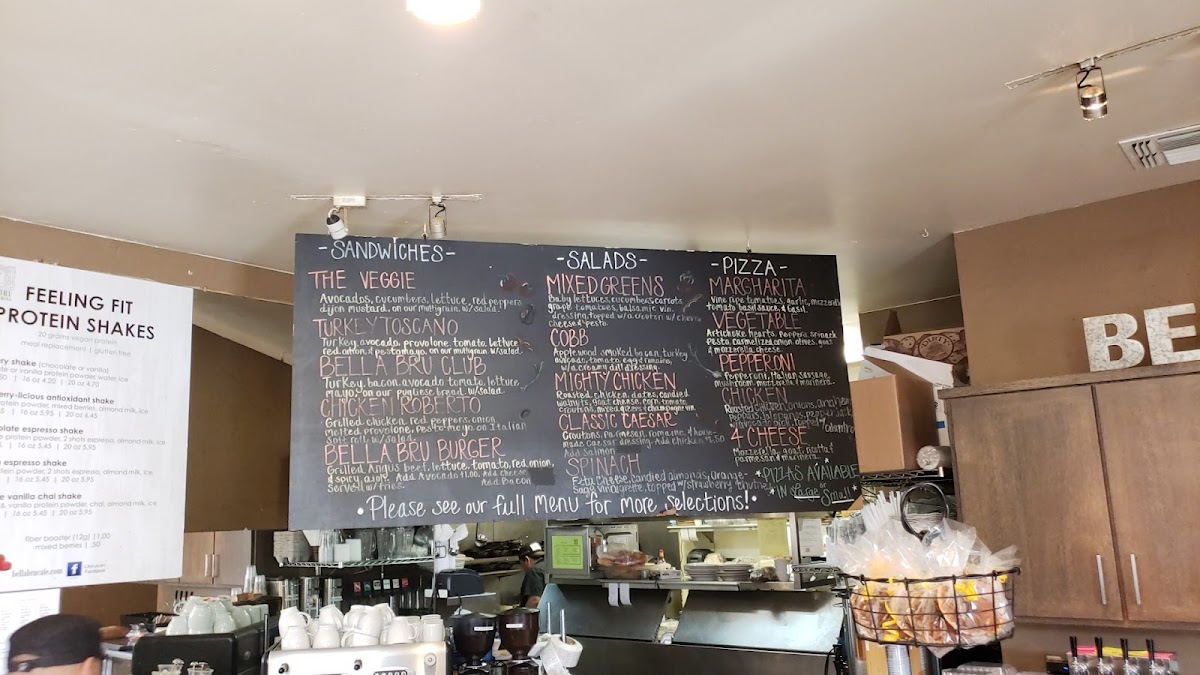 FEELING FIT
PROTEIN SHAKES
20 grams vegan protein
meal replacement | gluten free
shake (chocolate or vanilla)
or vanilla protein powder, water, ice
| 16 oz 4.20 | 20 oz 4.70
antioxidant shake
protein powder, mixed berries, almond milk, ice
| 16 oz 5.95 | 20 oz 6.45
espresso shake
protein powder, 2 shots espresso, almond milk, ice
| 16 oz 5.45 | 20 oz 5.95
espresso shake
protein powder, 2 shots espresso, almond milk, ice
| 16 oz 5.45 | 20 oz 5.95
vanilla chai shake
vanilla protein powder, chai, almond milk, ice
| 16 oz 5.45 | 20 oz 5.95
fiber booster (12g) |1.00
mixed berries | .50
bellabrucafe.com
-SANDWICHES-
THE VEGGIE
Avocados, cucumbers, lettuce, red peppers
dijon mustard, on our multigrain w/salad.
TURKEY TOSCANO
Turkey, avocado, provolone, tomato, lettuce
red onion & pesto mayo, on our multigrain w/salad.
BELLA BRU CLUB
Turkey, bacon, avocado, tomato, lettuce,
mayo, on our pugliese bread w/salad.
CHICKEN ROBERTO
Grilled chicken, red peppers, onion
melted provolone, pesto mayo on Italian
soft roll w/salad.
BELLA BRU BURGER
Grilled Angus beef, lettuce, tomato, red onion,
& spicy aioli. Add Avocado $1.00, Add cheese
Served w/fries. Add bacon
-SALADS-
MIXED GREENS
Baby lettuces, cucumbers, carrots
grape tomatoes, balsamic vin.
dressing, topped w/a crouton w/chevre
cheese & pesto.
COBB
Applewood smoked bacon, turkey
avocado, tomato, egg & romaine,
w/a creamy dill dressing.
MIGHTY CHICKEN
Roasted chicken, dates, candied
walnuts, goat cheese, corn, tomato,
croutons, mixed greens & champagne vin.
CLASSIC CAESAR
Croutons, parmesan, romaine, & house-
made caesar dressing. Add chicken $1.50
Add Salmon
SPINACH
Feta cheese, candied almonds, orange-
Sage vinaigrette, topped w/strawberry
-PIZZA-
MARGHARITA
Vine ripe tomatoes, garlic, mozzerella
tomato basil sauce, & basil.
VEGETABLE
Artichoke hearts, peppers, spinach
pesto, carmelized onion, olives, goat
& mozzerella cheese.
PEPPERONI
Pepperoni, Italian sausage,
mushroom, mozzerella & marinera.
CHICKEN
Roasted chicken, onions,
cilantro
4 CHEESE
Mozzerella, goat, ricotta &
parmesan & marinera.
*PIZZA'S AVAILABLE
IN Large or Small*
•Please see our full Menu for more selections!•
BE